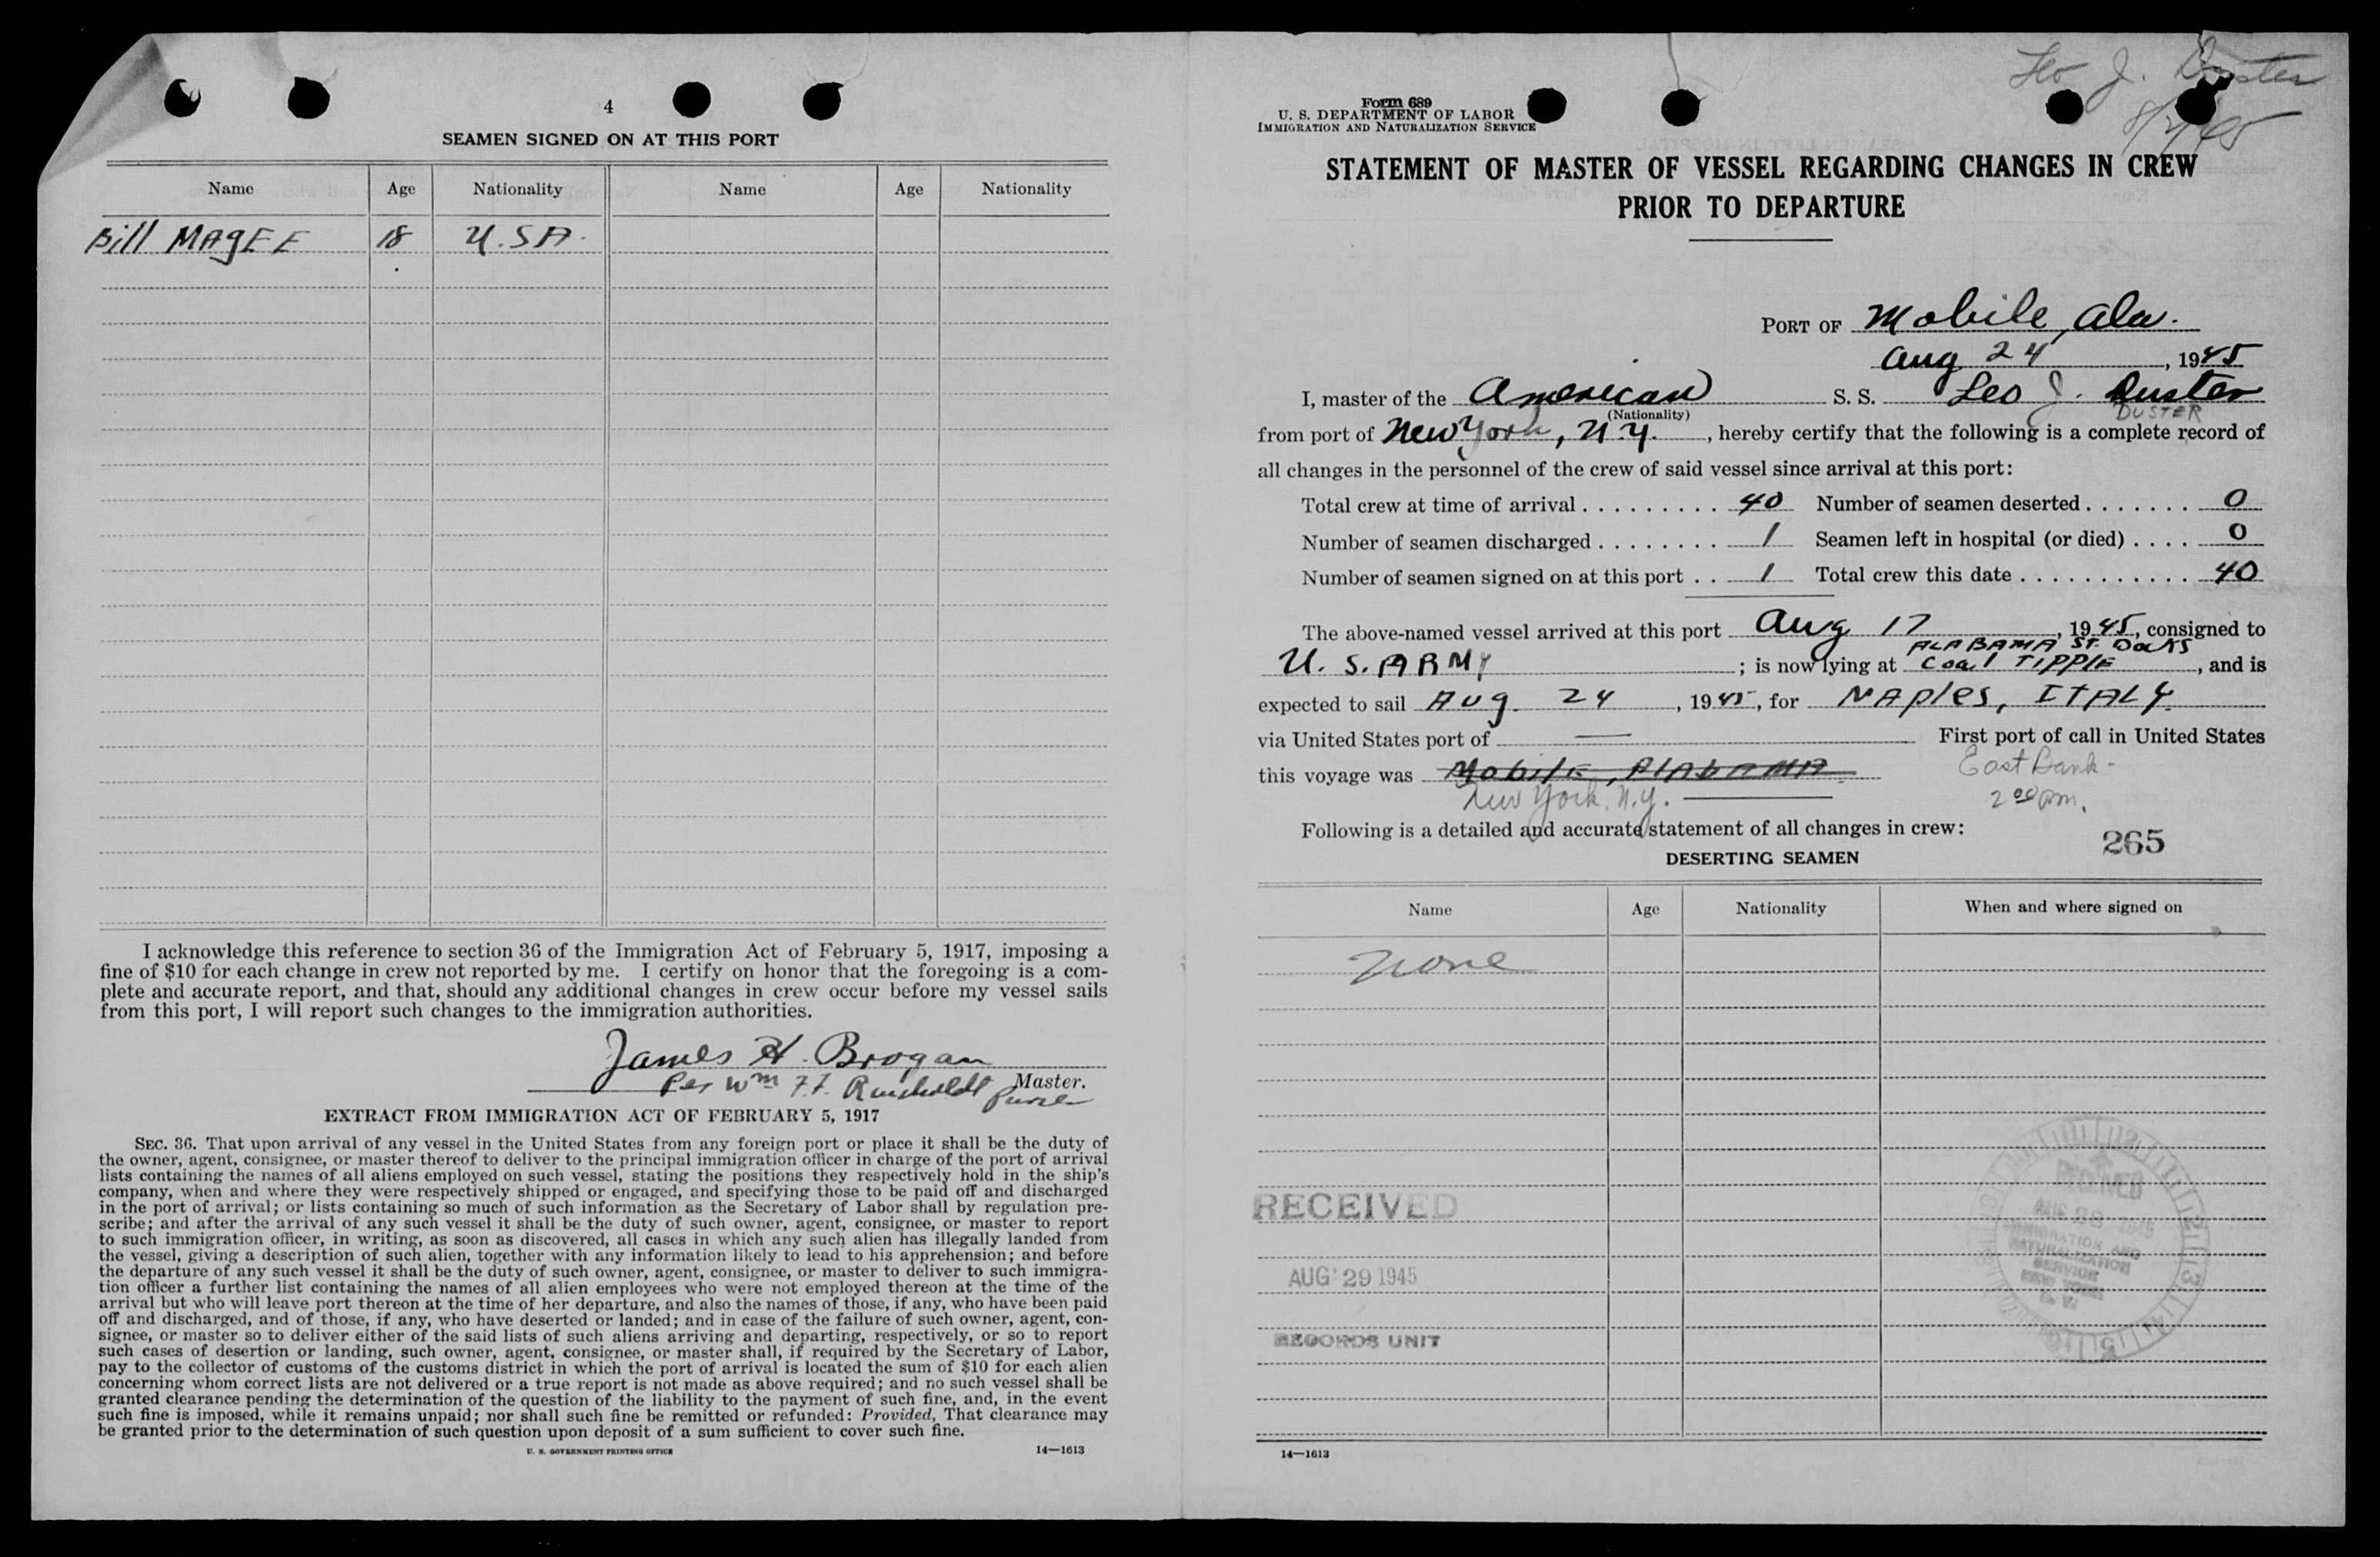 4
SEAMEN SIGNED ON AT THIS PORT
Name Age Nationality Name Age Nationality
Bill MAgEE 18 U.SA.
I acknowledge this reference to section 36 of the Immigration Act of February 5, 1917, imposing a
fine of $10 for each change in crew not reported by me. I certify on honor that the foregoing is a com-
plete and accurate report, and that, should any additional changes in crew occur before my vessel sails
from this port, I will report such changes to the immigration authorities.
James H. Brogan
Master.
Per Wm F.F. Purser
EXTRACT FROM IMMIGRATION ACT OF FEBRUARY 5, 1917
SEC. 36. That upon arrival of any vessel in the United States from any foreign port or place it shall be the duty of
the owner, agent, consignee, or master thereof to deliver to the principal immigration officer in charge of the port of arrival
lists containing the names of all aliens employed on such vessel, stating the positions they respectively hold in the ship's
company, when and where they were respectively shipped or engaged, and specifying those to be paid off and discharged
in the port of arrival; or lists containing so much of such information as the Secretary of Labor shall by regulation pre-
scribe; and after the arrival of any such vessel it shall be the duty of such owner, agent, consignee, or master to report
to such immigration officer, in writing, as soon as discovered, all cases in which any such alien has illegally landed from
the vessel, giving a description of such alien, together with any information likely to lead to his apprehension; and before
the departure of any such vessel it shall be the duty of such owner, agent, consignee, or master to deliver to such immigra-
tion officer a further list containing the names of all alien employees who were not employed thereon at the time of the
arrival but who will leave port thereon at the time of her departure, and also the names of those, if any, who have been paid
off and discharged, and of those, if any, who have deserted or landed; and in case of the failure of such owner, agent, con-
signee, or master so to deliver either of the said lists of such aliens arriving and departing, respectively, or so to report
such cases of desertion or landing, such owner, agent, consignee, or master shall, if required by the Secretary of Labor,
pay to the collector of customs of the customs district in which the port of arrival is located the sum of $10 for each alien
concerning whom correct lists are not delivered or a true report is not made as above required; and no such vessel shall be
granted clearance pending the determination of the question of the liability to the payment of such fine, and, in the event
such fine is imposed, while it remains unpaid; nor shall such fine be remitted or refunded: Provided, That clearance may
be granted prior to the determination of such question upon deposit of a sum sufficient to cover such fine.
U. S. GOVERNMENT PRINTING OFFICE 14—1613
Leo J. Duster
Form 689
U. S. DEPARTMENT OF LABOR
IMMIGRATION AND NATURALIZATION SERVICE
STATEMENT OF MASTER OF VESSEL REGARDING CHANGES IN CREW
PRIOR TO DEPARTURE
PORT OF Mobile, Ala.
Aug 24, 1945
I, master of the American S. S. Leo J. Duster
(Nationality) DUSTER
from port of New York, N.Y., hereby certify that the following is a complete record of
all changes in the personnel of the crew of said vessel since arrival at this port:
Total crew at time of arrival . . . . . . . . . 40 Number of seamen deserted . . . . . . . 0
Number of seamen discharged . . . . . . . . 1 Seamen left in hospital (or died) . . . . 0
Number of seamen signed on at this port . . 1 Total crew this date . . . . . . . . . . . 40
The above-named vessel arrived at this port Aug 17, 1945, consigned to
ALABAMA St. Docks
U. S. ARMY; is now lying at Coal TIPPlE, and is
expected to sail Aug. 24, 1945, for NAples, ITALY.
via United States port of — First port of call in United States
this voyage was MobilE, AlAbAMA East Bank -
New York, N.Y. 2 00 pm.
Following is a detailed and accurate statement of all changes in crew:
265
DESERTING SEAMEN
Name Age Nationality When and where signed on
None
RECEIVED
AUG 29 1945
RECORDS UNIT
RECEIVED
AUG 28 1945
IMMIGRATION AND
NATURALIZATION
SERVICE
NEW YORK
N. Y.
14—1613